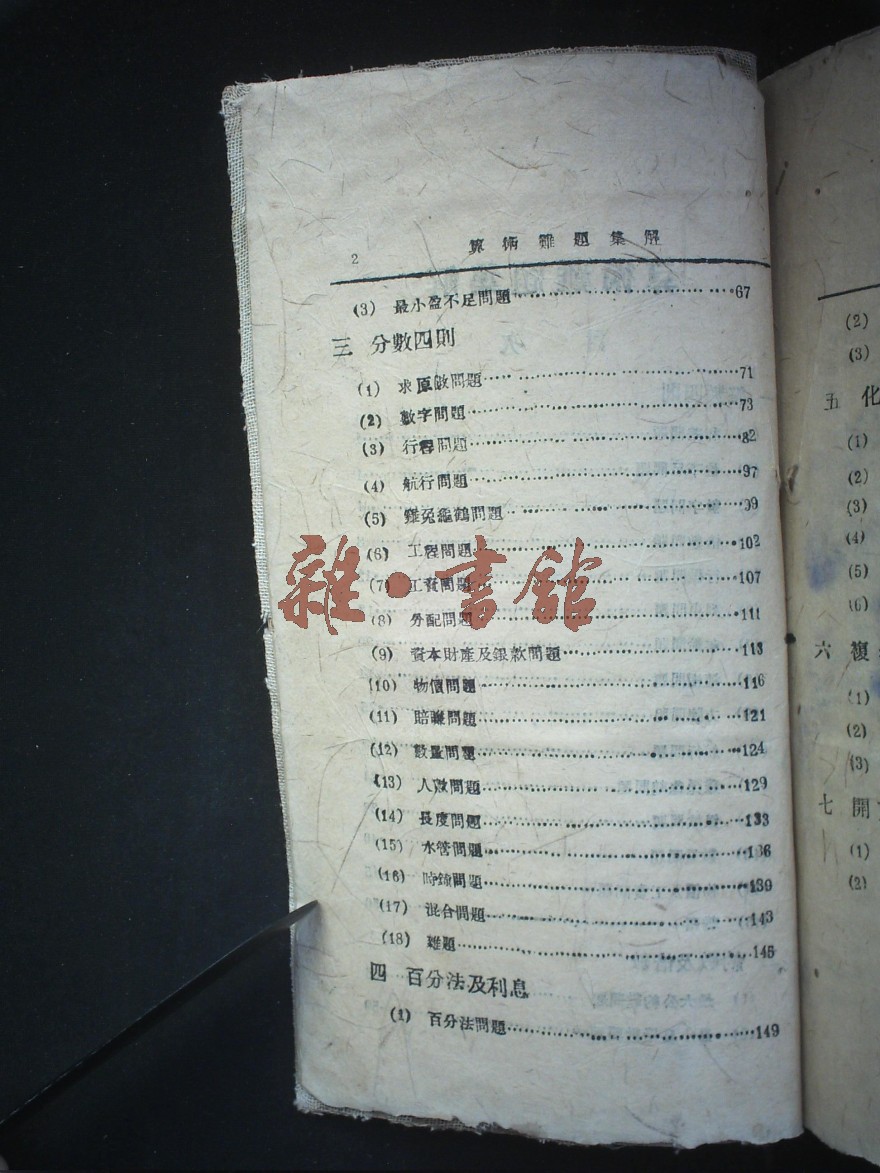 2 算術難題集解
(3) 最小盈不足問題 67
三 分數四則
(1) 求原數問題 71
(2) 數字問題 73
(3) 行程問題 82
(4) 航行問題 97
(5) 雞兔龜鶴問題 99
(6) 工程問題 102
(7) 工資問題 107
(8) 分配問題 111
(9) 資本財產及銀款問題 113
(10) 物價問題 116
(11) 賠賺問題 121
(12) 數量問題 124
(13) 人數問題 129
(14) 長度問題 133
(15) 水管問題 136
(16) 時鐘問題 139
(17) 混合問題 143
(18) 雜題 146
四 百分法及利息
(1) 百分法問題 149
雜·書館
(2)
(3)
五 化
(1)
(2)
(3)
(4)
(5)
(6)
六 複
(1)
(2)
(3)
七 開
(1)
(2)